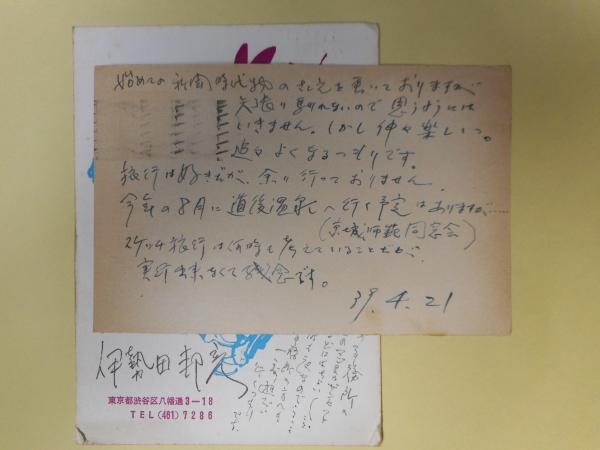 始めての新聞時代物のさし絵を書いておりますが
矢張り馴れないので思うようには
いきません。しかし仲々楽しいっ。
追々よくなるつもりです。
旅行は好きだが、余り行っておりません
今年の8月に道後温泉へ行く予定はありますが……
(京城師範同窓会)
スケッチ旅行は何時も考えていることだが、
実行出来なくて残念です。
39.4.21
伊勢田邦彦
東京都渋谷区八幡通3-18
TEL(461)7286
です。